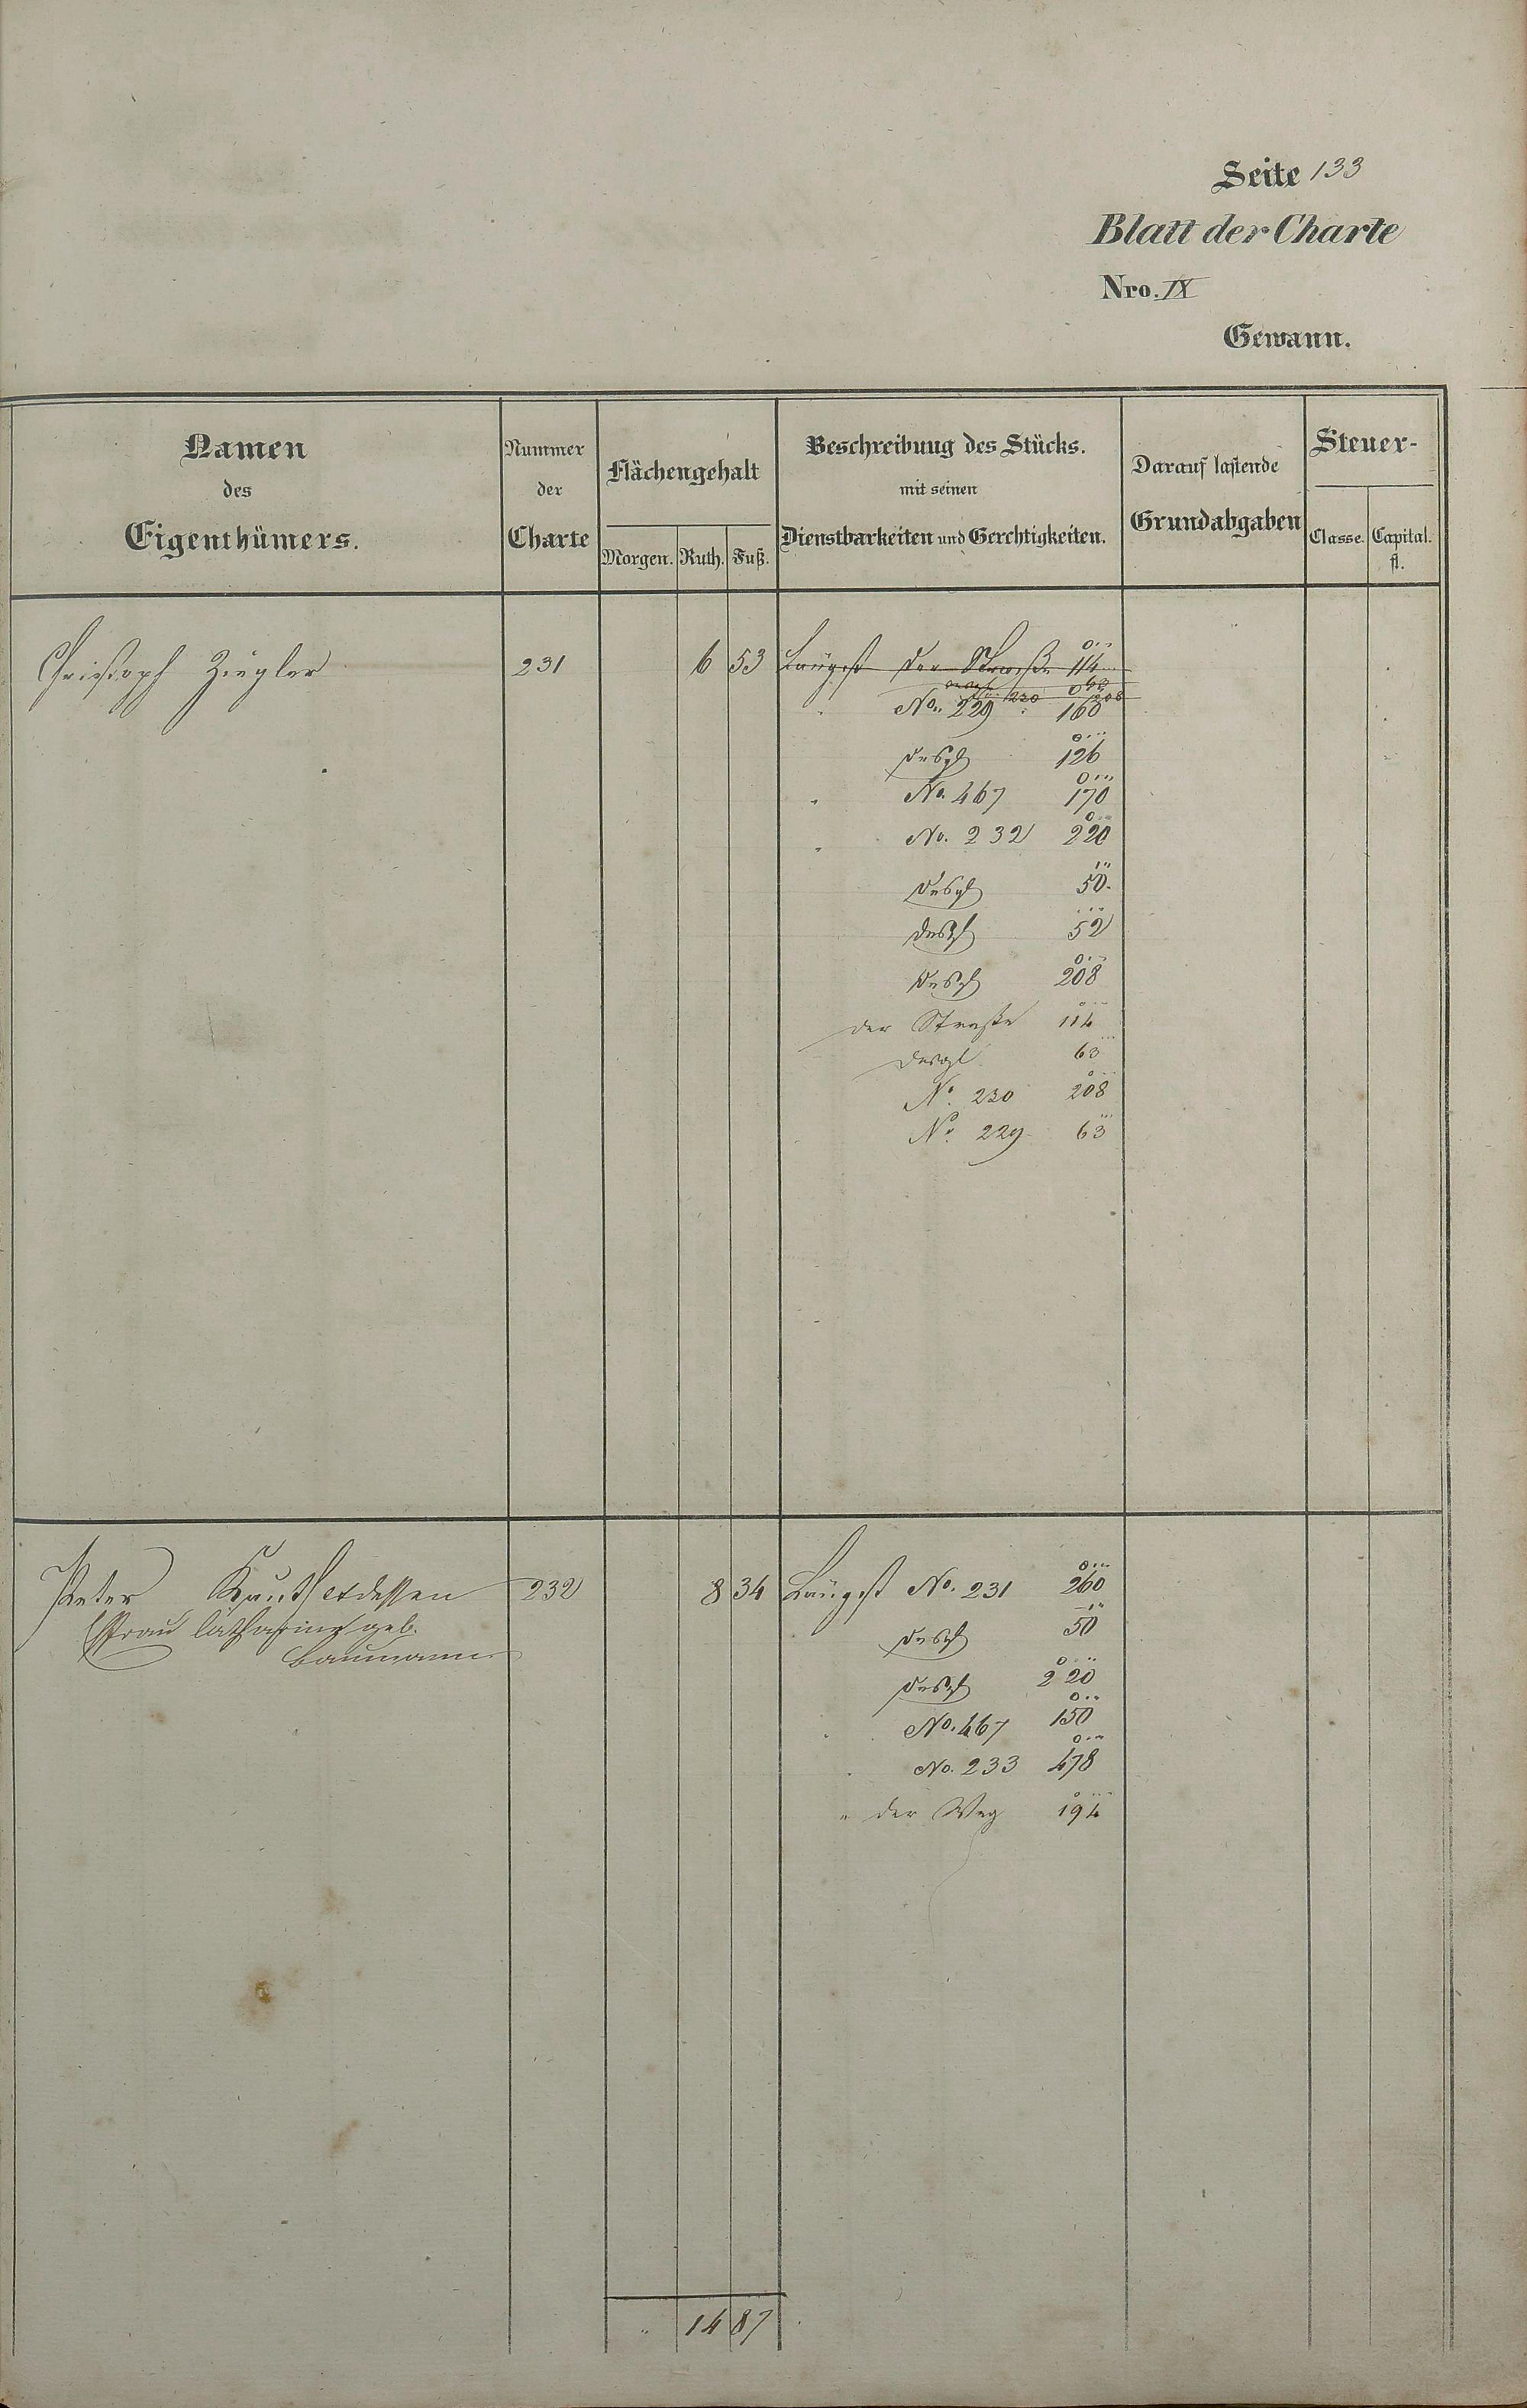 Seite 133
Blatt der Charte
Nro. IX
Gewann.
Namen des Eigenthümers.
Nummer der Charte
Flächengehalt
Morgen. Ruth. Fuß.
Beschreibung des Stücks.
mit seinen
Dienstbarkeiten und Gerechtigkeiten.
Darauf lastende
Grundabgaben
Steuer-
Classe. Capital.
fl.
Christoph Ziegler 231 6 53 Längst der Straße 114
230 208
" No. 229 160
desgl 126
" No. 467 170
" No. 232 220
desgl 50
desgl 52
desgl 208
der Straße 114
desgl 63
No. 230 208
No. 229 63
Peter Kauth et dessen 232 8 34 Längst No. 231 260
Frau Catharina geb.
Baumann
desgl 50
desgl 220
" No. 467 150
" No. 233 478
" der Weg 194
" 14 87